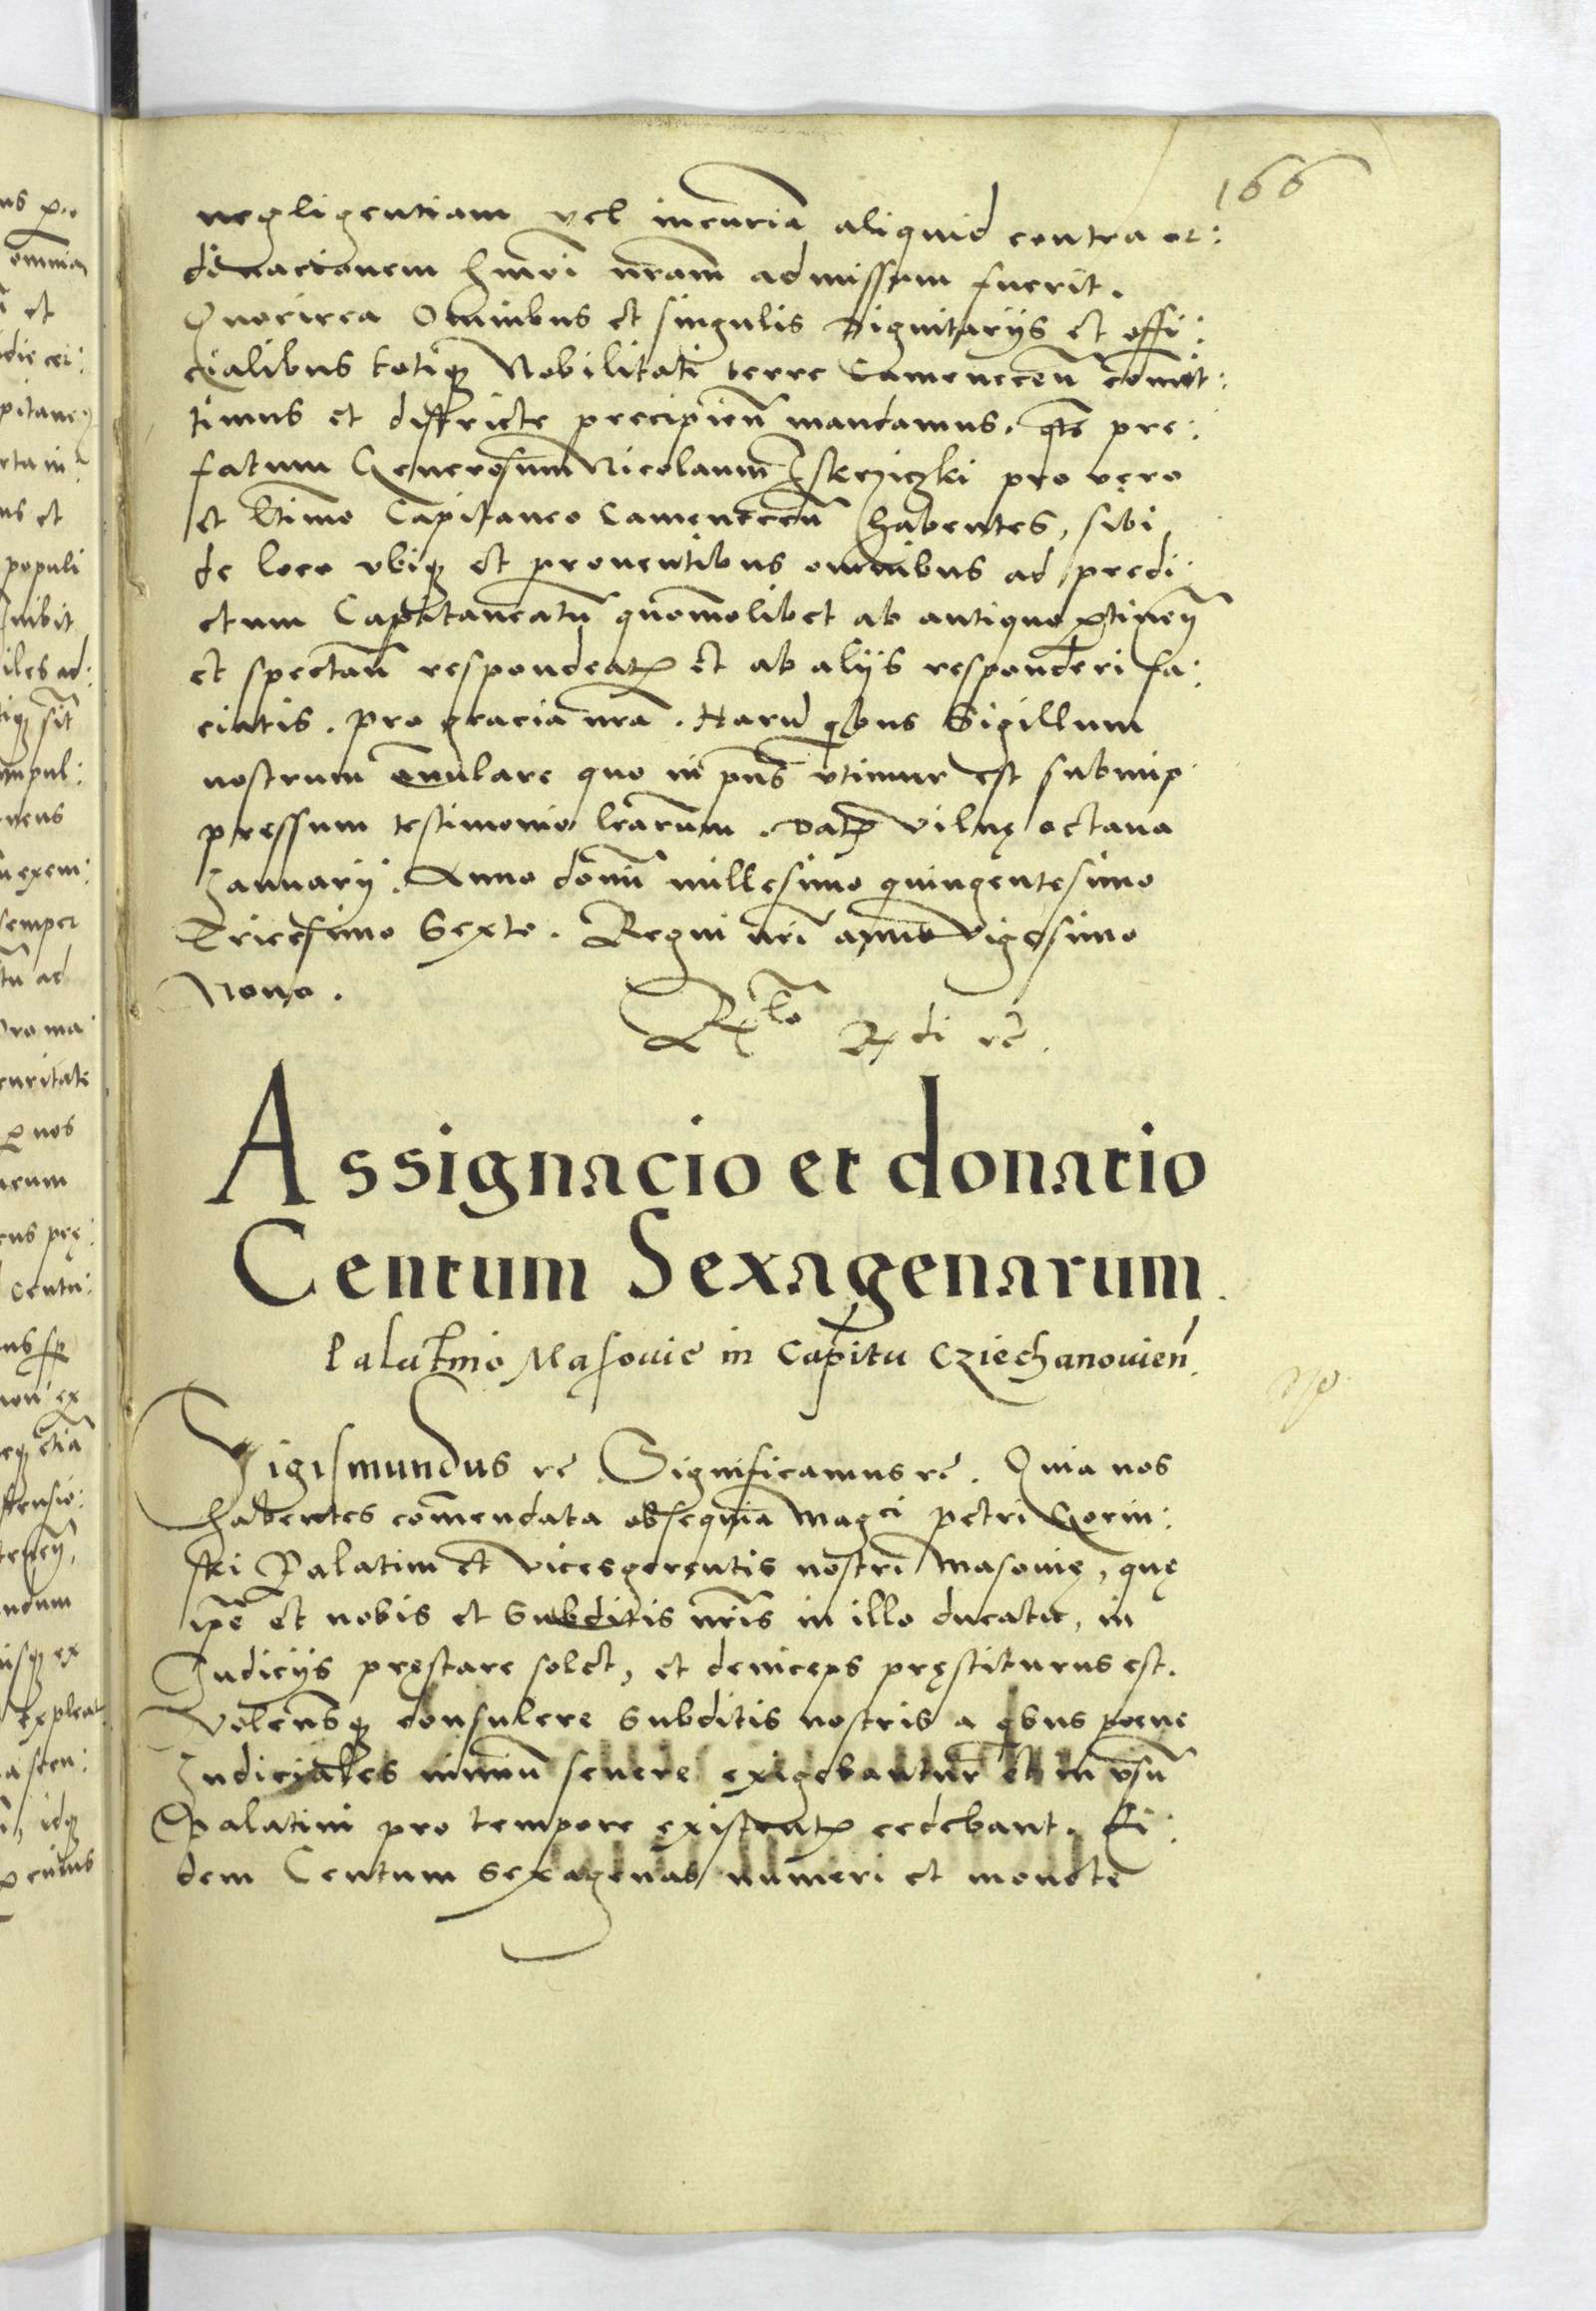 166
negligentiam vel incuriã aliquid contra or:
dinacionem hmõi nr̃am admissum fuerit.
Quocirca Omnibus et singulis Dignitarijs et offi:
cialibus totiqʒ Nobilitati terre Camenecen̄ com̄it:
timus et districte precipien̄ mandamus. qt̃e pre:
fatum Generosum Nicolaum Iskrziczki pro vero
et ltimo Capitaneo Camenecen̄ habentes, sibi
de loco vbiqʒ et prouentibus omnibus ad predi:
ctum Capitaneatū quomolibet ab antiquo ꝑtinen̄
et spectan̄ respondeatꝭ et ab alijs responderi fa:
ciatis. pro gracia nrã. Harū qbus Sigillum
nostrum anulare quo in pñs vtimur est subimp
pressum testimonio lrãrum. Datꝭ Vilnę octaua
Januarij. Anno domī millesimo quingentesimo
Tricesimo Sexto. Regni nrĩ anno Vigesimo
Nono.
Rlo R di rc̃.
Assignacio et donatio
Centum Sexagenarum.
Palatino Masouie in Capitu Cziechanouien̄.
Sigismundus rc̃ Significamus rc̃. Quia nos
habentes com̄endata obsequia Magci petri Gorin:
ski Palatini et Vicesgerentis nostri Masouię, quę
ip̃e et nobis et Subditis nrĩs in illo ducatu, in
Judicijs pręstare solet, et deinceps pręstiturus est.
Volensqʒ consulere subditis nostris a qbus poene
Judiciales nimiū seuere exigebantur et in vsū
Palatini pro tempore existentꝭ cedebant. Ei:
dem Centum sexagenas numeri et monete